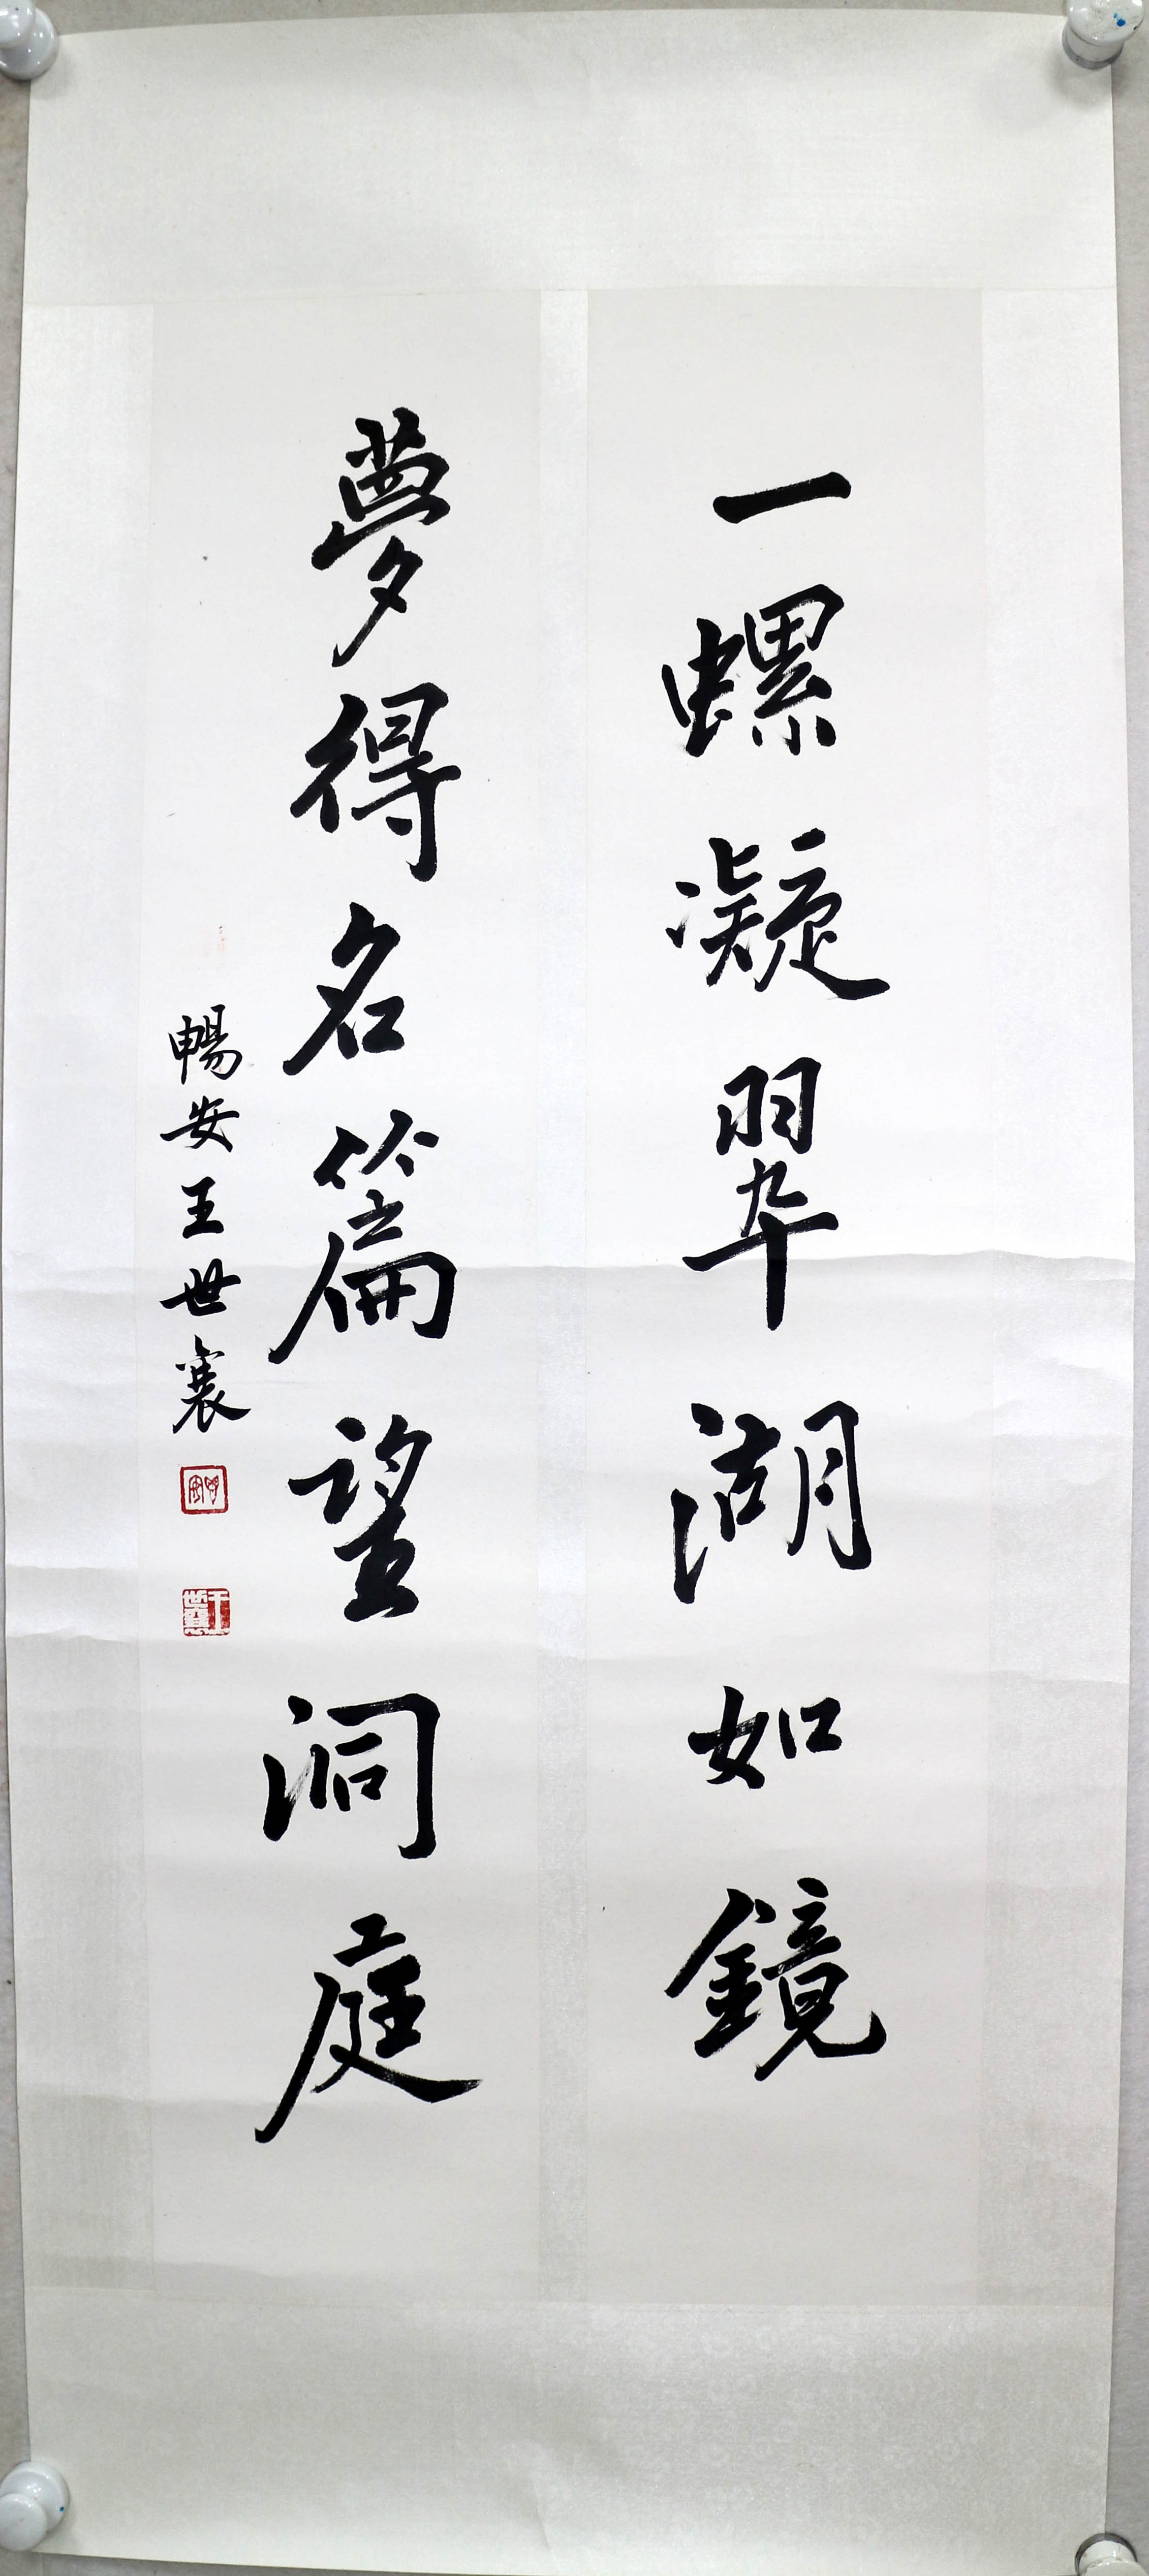 一螺凝翠湖如鏡
夢得名篇望洞庭
暢安王世襄
王世襄